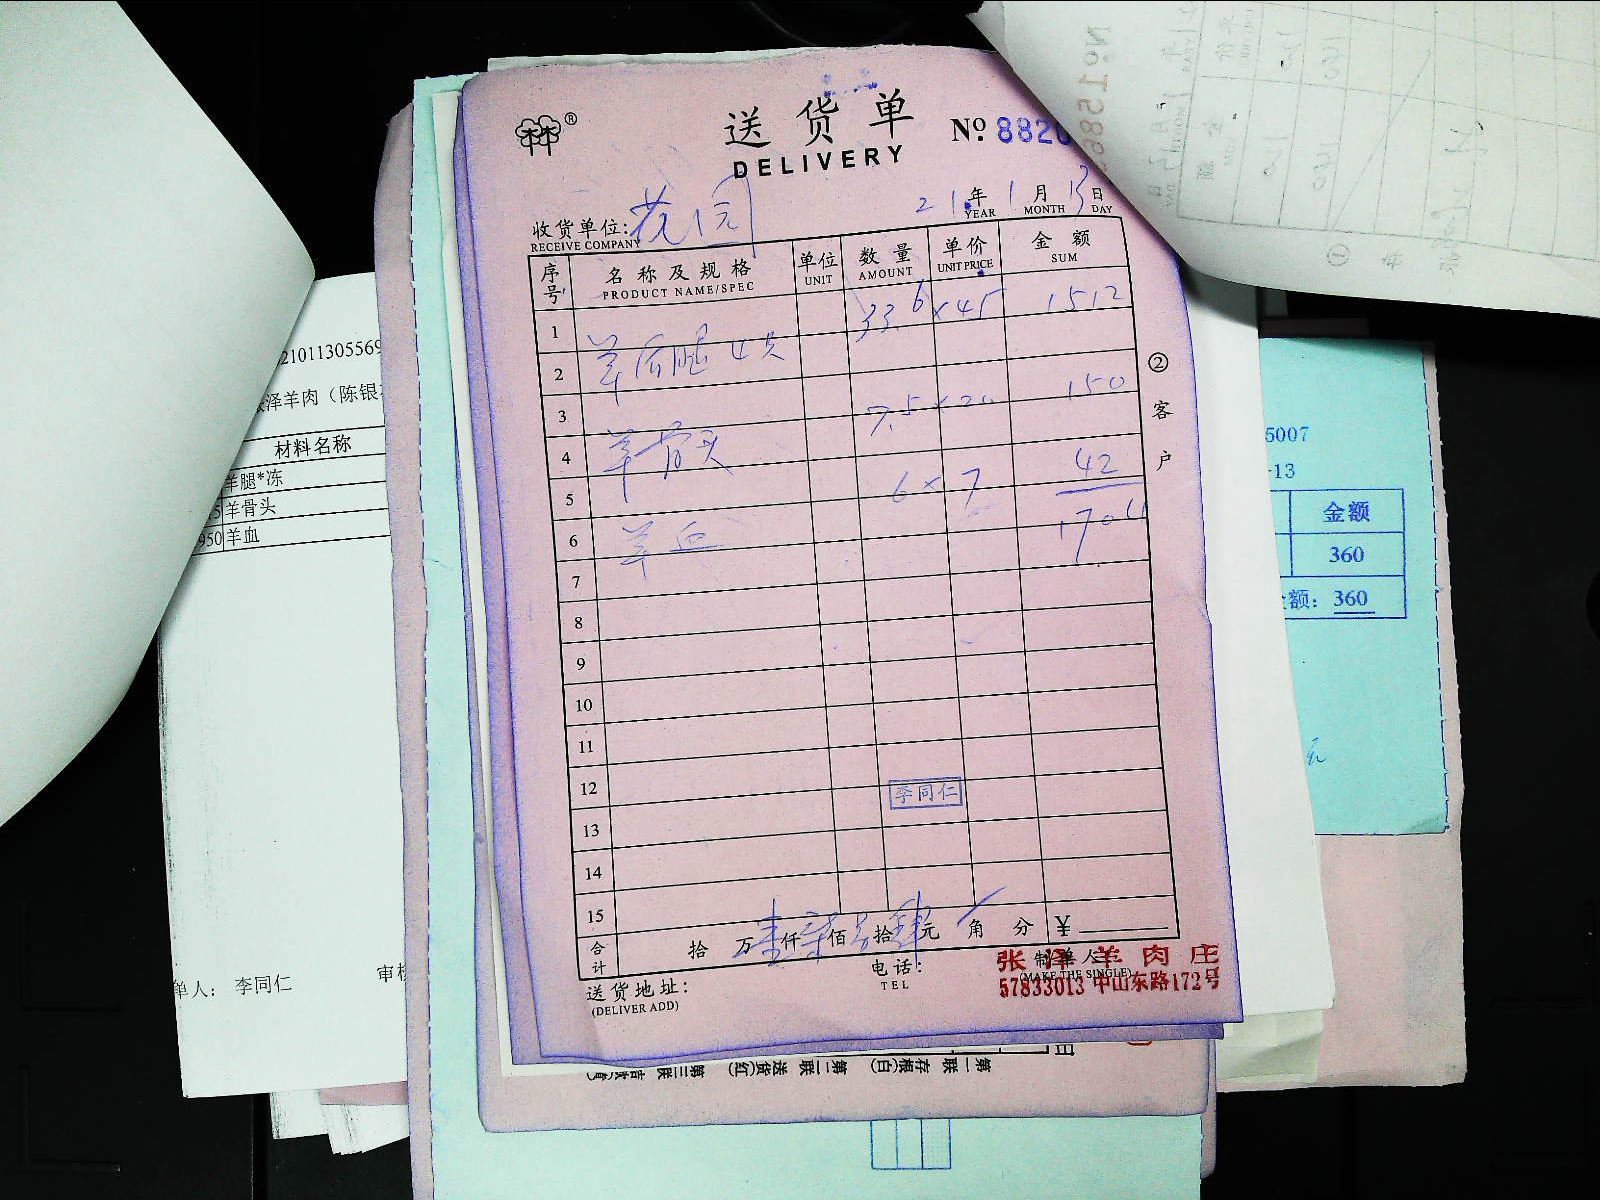 送货单
DELIVERY
No. 8820
21年 1月 13日
YEAR MONTH DAY
收货单位: 花园
RECEIVE COMPANY
序号 名称及规格 单位 数量 单价 金额
PRODUCT NAME/SPEC UNIT AMOUNT UNIT PRICE SUM
1 33.6 × 45 1512
2 羊后腿 4只
3 7.5 × 20 150
4 羊骨头
5 6 × 7 42
6 羊血 1704
7
8
9
10
11
12 李同仁
13
14
15
合计 拾 万 壹 仟 柒 佰 另 拾 肆 元 角 分 ¥
② 客户
送货地址:
(DELIVER ADD)
电话:
TEL
制单人
(MAKE THE SINGLE)
张泽羊肉庄
57833013 中山东路172号
21011305569
泽羊肉（陈银
材料名称
羊腿*冻
5 羊骨头
950 羊血
单人: 李同仁
审核
5007
-13
金额
360
额: 360
第一联 存根(白) 第二联 送货(红) 第三联
No 1586